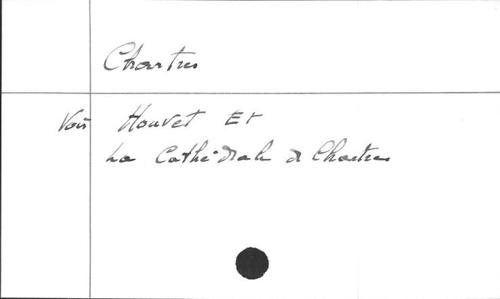 Chartres
Voir Houvet Et
La Cathédrale de Chartres